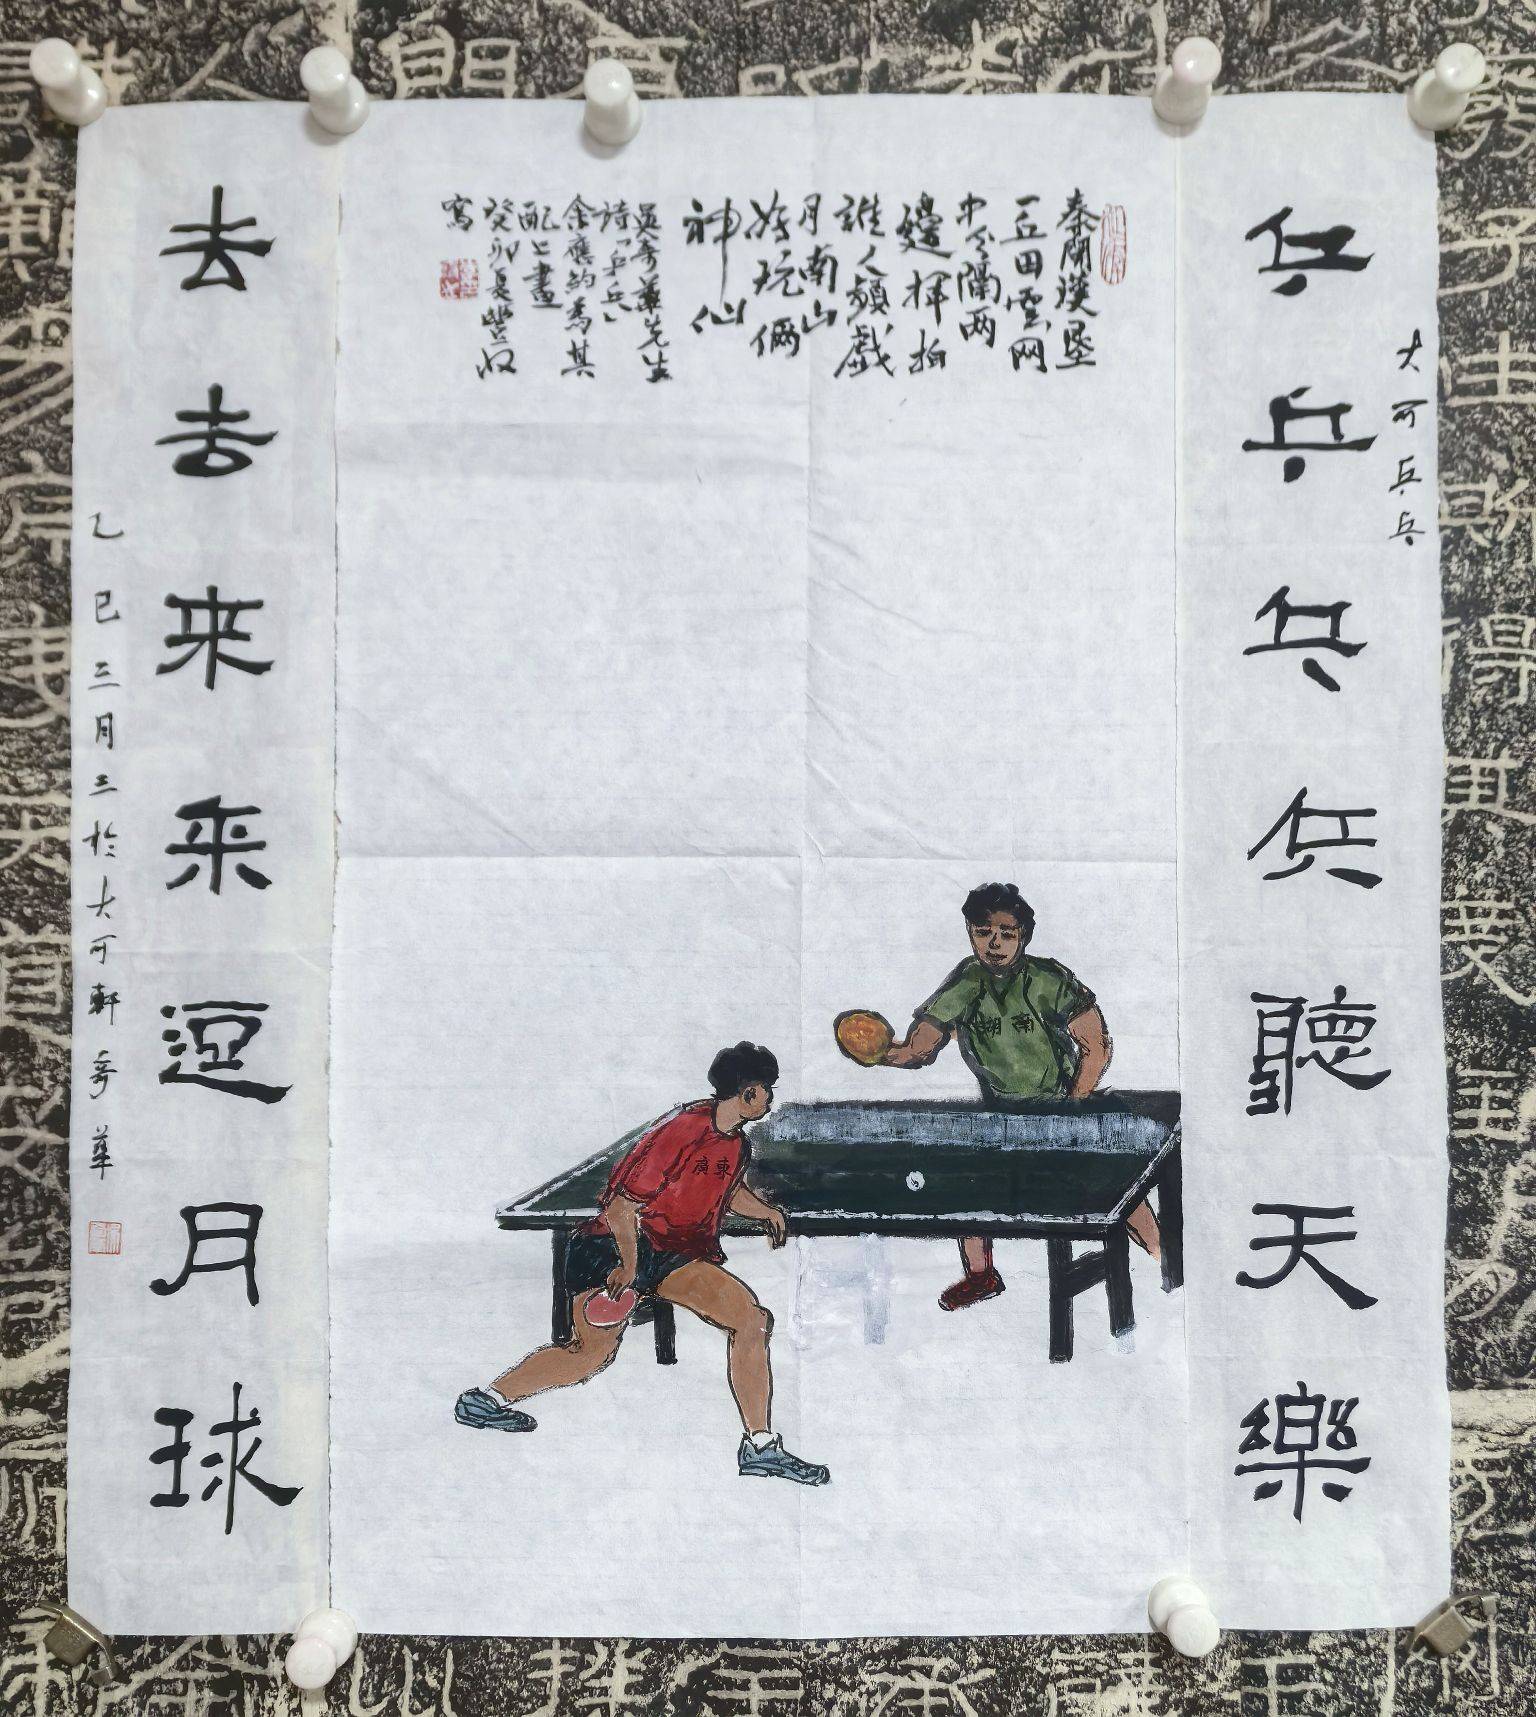 大可乒乓
乒乒乓乓聽天樂
去去来来逗月球
乙巳三月三於大可軒奇華
秦開漢墾
一丘田雲网
中分隔两
邊揮拍
誰人頻戲
月南山
好玩俩
神仙
吳奇華先生
詩「乒乓」
余應約為其
配上畫
癸卯夏豐收
寫
湖南
廣東